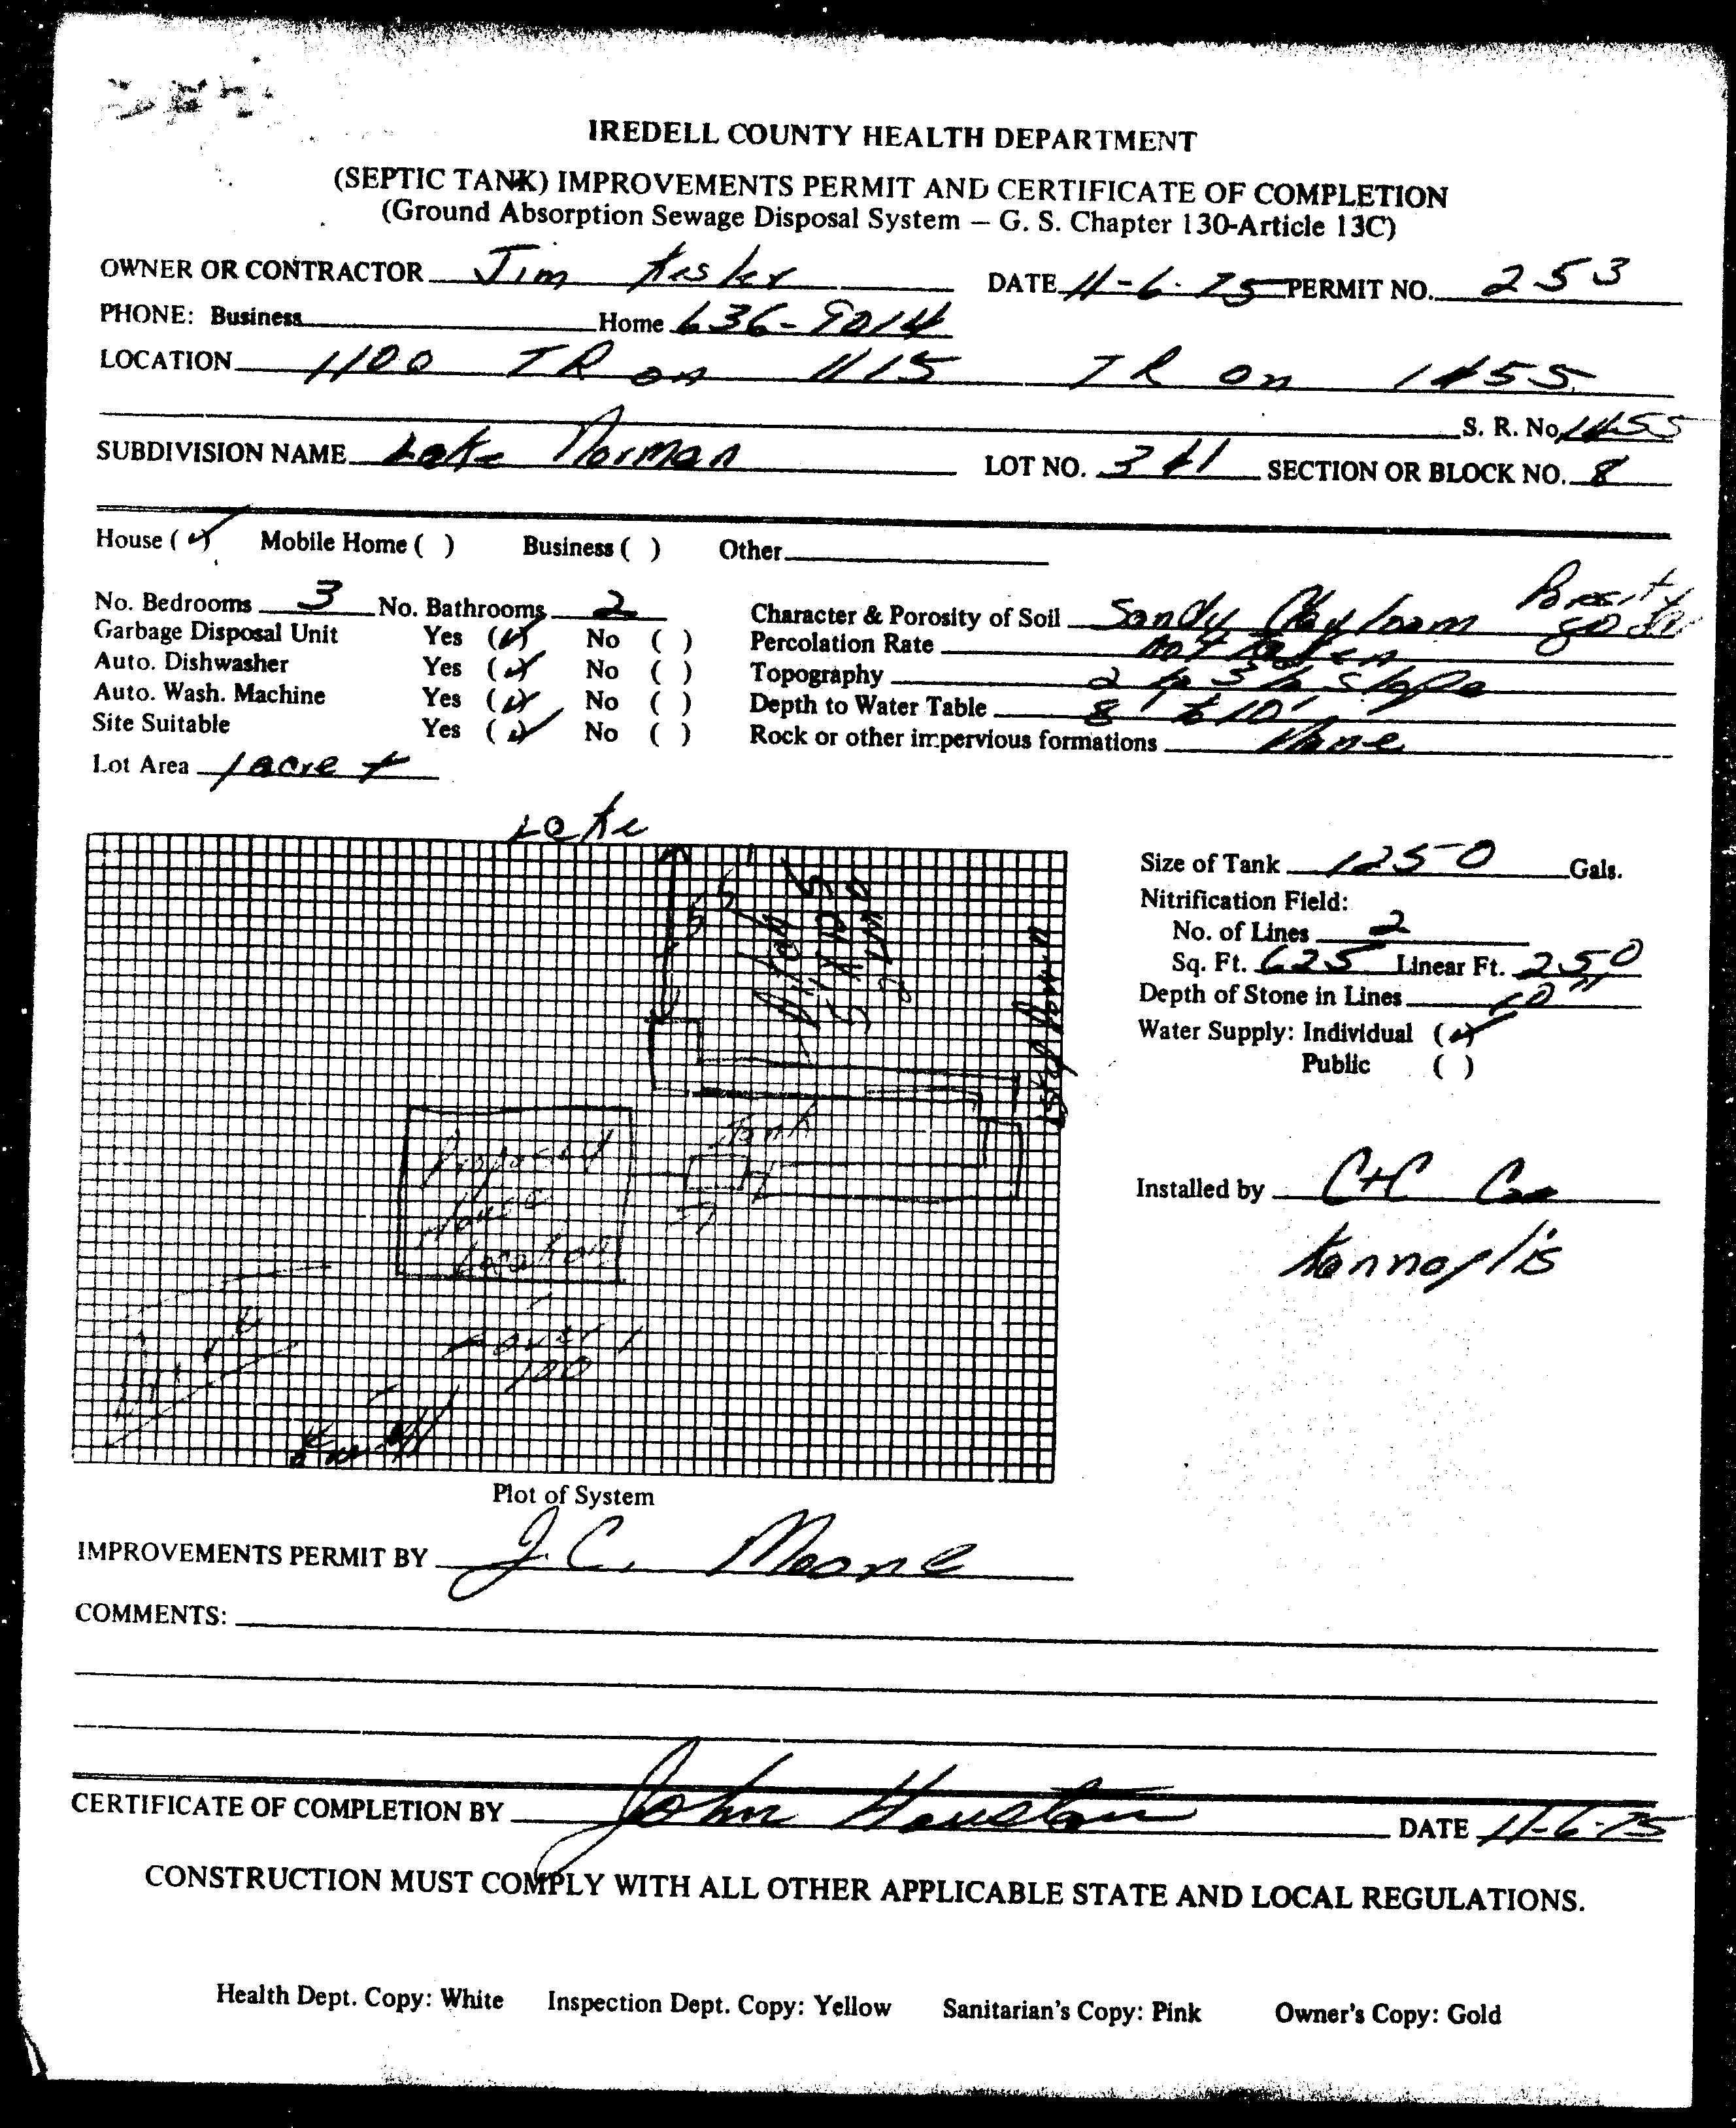 IREDELL COUNTY HEALTH DEPARTMENT
(SEPTIC TANK) IMPROVEMENTS PERMIT AND CERTIFICATE OF COMPLETION
(Ground Absorption Sewage Disposal System – G. S. Chapter 130-Article 13C)
OWNER OR CONTRACTOR Jim Kesler DATE 11-6-75 PERMIT NO. 253
PHONE: Business Home 636-9014
LOCATION 1100 TR on 1115 TR on 1455
S. R. No. 1455
SUBDIVISION NAME Lake Norman LOT NO. 341 SECTION OR BLOCK NO. 8
House (✓) Mobile Home ( ) Business ( ) Other
No. Bedrooms 3 No. Bathrooms 2 Character & Porosity of Soil Sandy Clay loam Porosity good
Garbage Disposal Unit Yes (✓) No ( ) Percolation Rate not taken
Auto. Dishwasher Yes (✓) No ( ) Topography 2 to 3% slope
Auto. Wash. Machine Yes (✓) No ( ) Depth to Water Table 8' to 10'
Site Suitable Yes (✓) No ( ) Rock or other impervious formations None
Lot Area 1 acre +
Lake
Size of Tank 1250 Gals.
Nitrification Field:
No. of Lines 2
Sq. Ft. 625 Linear Ft. 250
Depth of Stone in Lines 10"
Water Supply: Individual (✓)
Public ( )
55'
Tank
Proposed
House
Location
over
100'
Installed by C+C Co
Kannaplis
Plot of System
IMPROVEMENTS PERMIT BY J.C. Moone
COMMENTS:
CERTIFICATE OF COMPLETION BY John Houston DATE 11-6-75
CONSTRUCTION MUST COMPLY WITH ALL OTHER APPLICABLE STATE AND LOCAL REGULATIONS.
Health Dept. Copy: White Inspection Dept. Copy: Yellow Sanitarian's Copy: Pink Owner's Copy: Gold